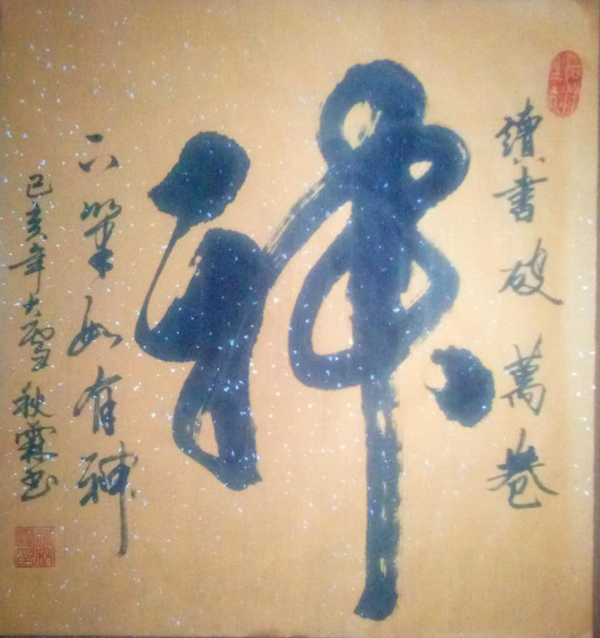 讀書破萬卷
神
下筆如有神
己亥年大雪秋霖书